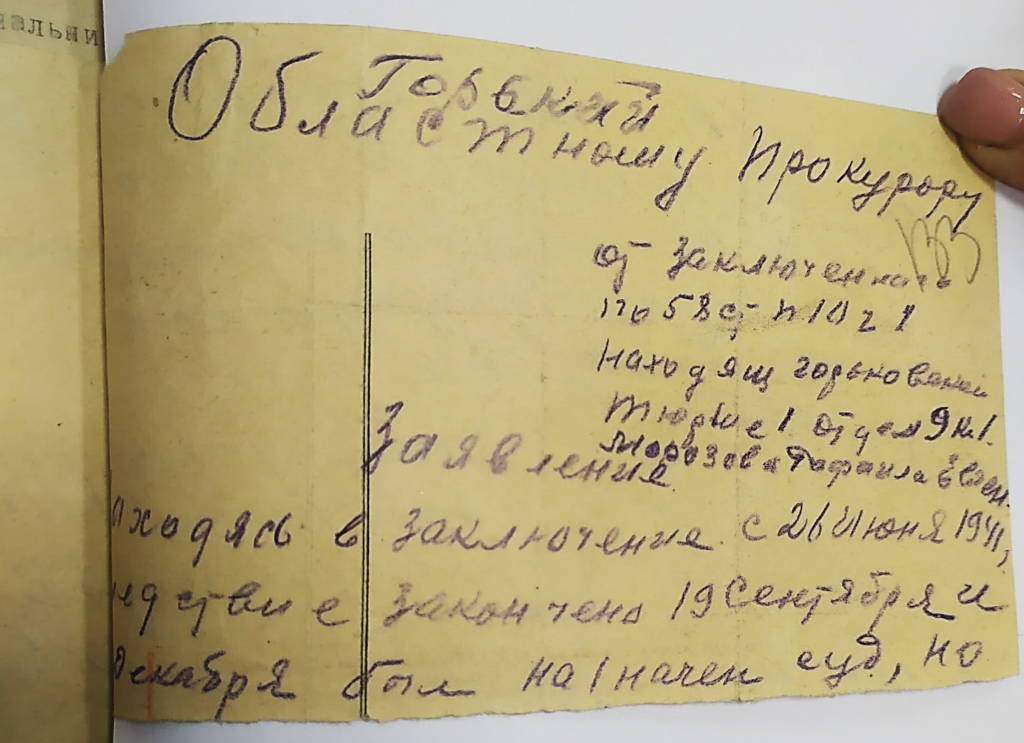 альни
Горький
Областному Прокурору
от Заключеннаго
по 58 ст п 10 ч 1
находящ горьковской
тюрьме 1 отдел 9 к 1.
Морозова Рафаила Евген.
Заявление
аходясь в заключение с 26 Июня 1941,
едствие закончено 19 Сентября и
Декабря был назначен суд, но